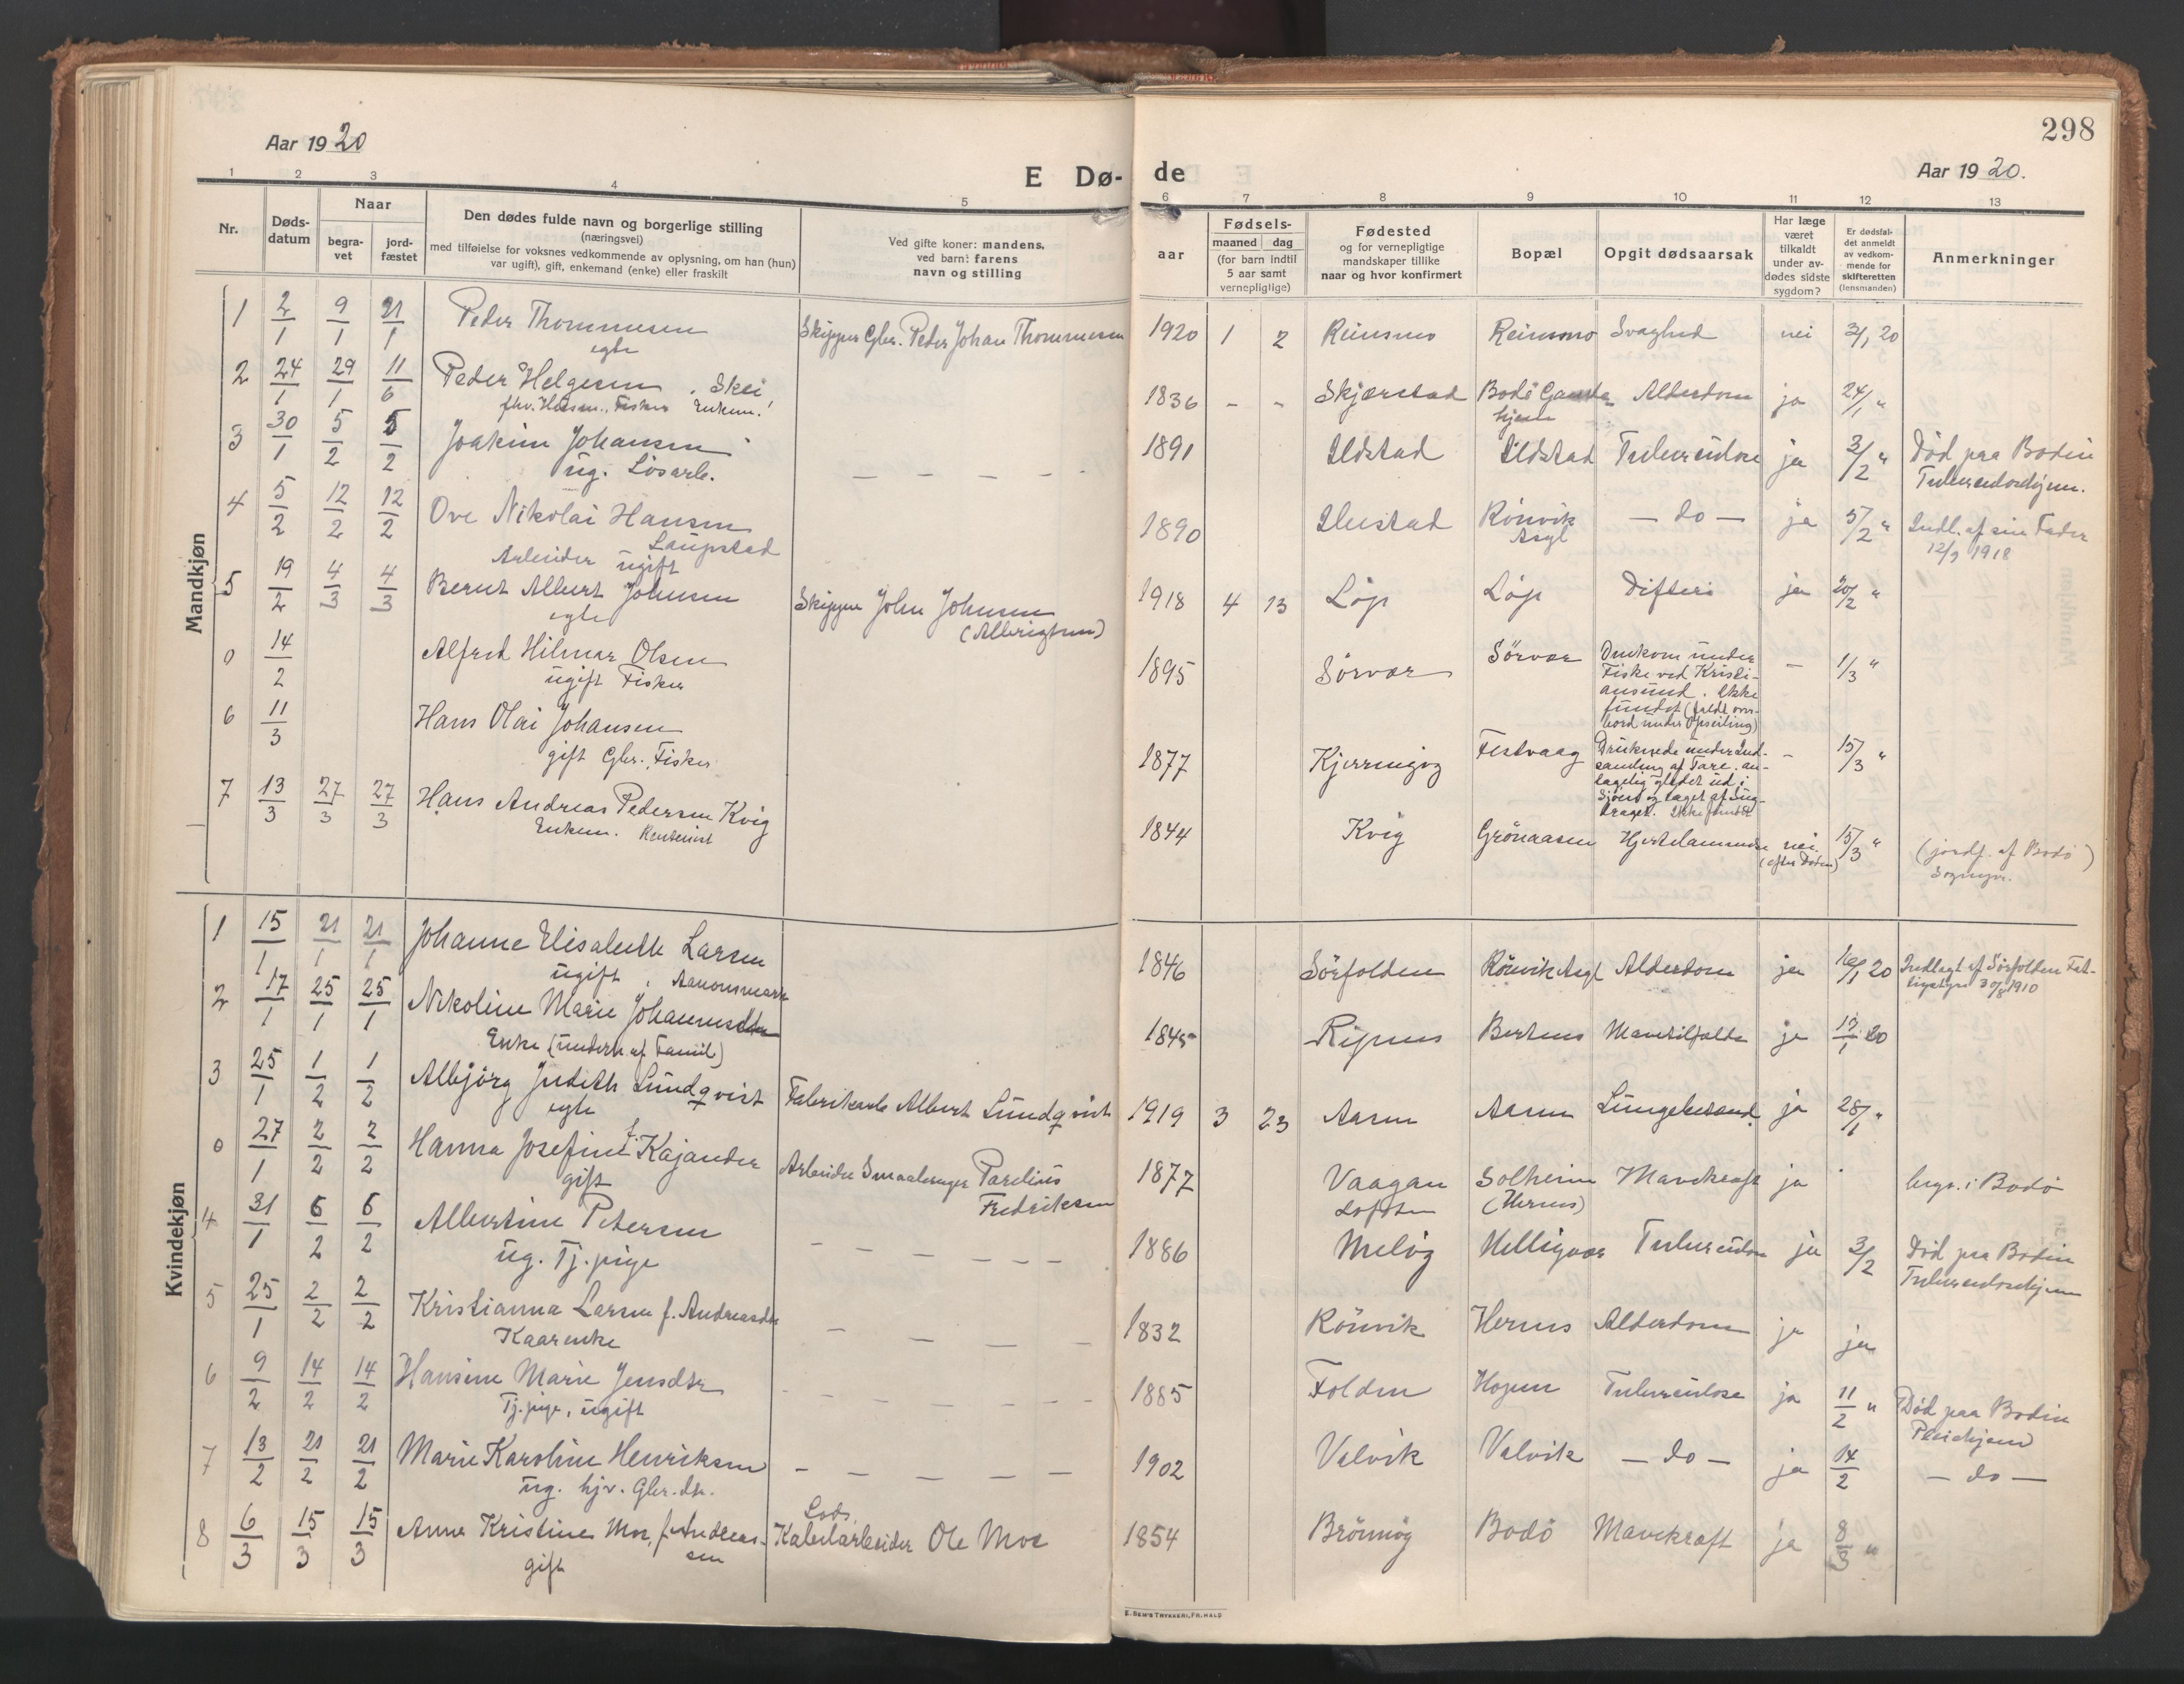 298
Aar 1920
E Dø-
de
Aar 1920.
1 2 3 4 5 6 7 8 9 10 11 12 13
Nr.
Døds-
datum
Naar
begra-
vet
jord-
fæstet
Den dødes fulde navn og borgerlige stilling
(næringsvei)
med tilføielse for voksnes vedkommende av oplysning, om han (hun)
var ugift), gift, enkemand (enke) eller fraskilt
Ved gifte koner: mandens,
ved barn: farens
navn og stilling
aar
Fødsels-
maaned dag
(for barn indtil
5 aar samt
vernepligtige)
Fødested
og for vernepligtige
mandskaper tillike
naar og hvor konfirmert
Bopæl
Opgit dødsaarsak
Har læge
været
tilkaldt
under av-
dødes sidste
sygdom?
Er dødsfal-
det anmeldt
av vedkom-
mende for
skifteretten
(lensmanden)
Anmerkninger
Mandkjøn
1 2/1 9/1 21/1 Peder Thommesen Skipper Gbr. Peder Johan Thommesen 1920 1 2 Reinsmo Reinsmo Svaghed nei 3/1 20
egte
2 24/1 29/1 11/6 Peder Helgesen, Skei 1836 - - Skjærstad Bodö Gamle Alderdom ja 24/1 "
fhv. Husm., Fisker Enkem. hjem
3 30/1 5/2 5/2 Joakim Johansen — — — — 1891 Ildstad Ildstad Tuberculose ja 3/2 " Död paa Bodin
ug. Lösarb. Tuberculosehjem.
4 5/2 12/2 12/2 Ove Nikolai Hansen 1890 Ilustad Rönvik — do — ja 5/2 " Indl. af sin Fader
Laupstad Asyl 12/9 1918
Arbeider ugift
5 19/2 4/3 4/3 Bernt Albert Johnsen Skipper John Johnsen 1918 4 13 Löp Löp Difteri ja 20/2 "
egte (Albrigtsen)
0 14/2 Alfred Hilmar Olsen 1895 Sörvær Sörvær Omkom under — 1/3 "
ugift Fisker Fiske ved Kristi-
ansund. Ikke
fundet (faldt over-
bord under Opseiling)
6 11/3 Hans Olai Johansen 1877 Kjerringög Festvaag Druknede under Ind- — 15/3 "
gift Gbr., Fisker samling af Tare, an-
tagelig glidet ud i
Sjöen og taget af Sug-
draget. Ikke fundet
7 13/3 27/3 27/3 Hans Andreas Pedersen Kvig 1844 Kvig Grönaasen Hjertelammelse nei 15/3 " (jordf. af Bodö)
Enkem. Rentenist (efter Döden) Sognepr.
Kvindekjøn
1 15/1 21/1 21/1 Johanne Elisabeth Larsen 1846 Sörfolden Rönvik Asyl Alderdom ja 16/1 20 Indlagt af Sörfolden Fat-
ugift, Aanonsmark tigstyre 30/8 1910
2 17/1 25/1 25/1 Nikoline Marie Johannesdtr 1845 Ripnes Bertnes Mavetilfælde ja 17/1 20
Enke (underh. af Famil)
3 25/1 1/2 1/2 Albjörg Judith Lundqvist Fabrikarb Albert Lundqvist 1919 3 23 Aasen Aasen Lungebetænd. ja 28/1 "
egte
0 27/1 2/2 2/2 Hanna Josefine f. Kajander Arbeider Smaabruger Parelius 1877 Vaagan Solheim Mavekræft ja begr. i Bodö
gift Fredriksen Lofoten (Hernes)
4 31/1 6/2 6/2 Albertine Petersen — — — — — 1886 Melöy Helligvær Tuberculose ja 3/2 Död paa Bodin
ug. Tj. pige Tuberculosehjem
5 25/1 2/2 2/2 Kristianna Larsen f. Andreasdtr — — — — 1832 Rönvik Hernes Alderdom ja ja
Kaarenke
6 9/2 14/2 14/2 Hansine Marie Jensdtr — — — — — 1885 Folden Hopen Tuberculose ja 11/2 " Död paa Bodin
Tj. pige, ugift Pleiehjem
7 13/2 21/2 21/2 Marie Karoline Henriksen — — — — — 1902 Valvik Valvik — do — ja 14/2 — do —
ug. hjv. Gbr. dtr.
8 6/3 15/3 15/3 Anne Kristine Moe, f. Andreas- Lods, 1854 Brönnög Bodö Mavekræft ja 8/3 "
sen Kabelarbeider Ole Moe
gift
E. SEM'S TRYKKERI, FR.HALD